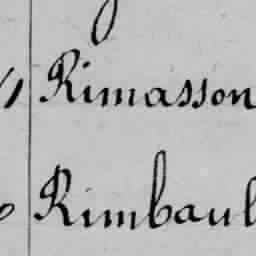 Rimasson
Rimbaul